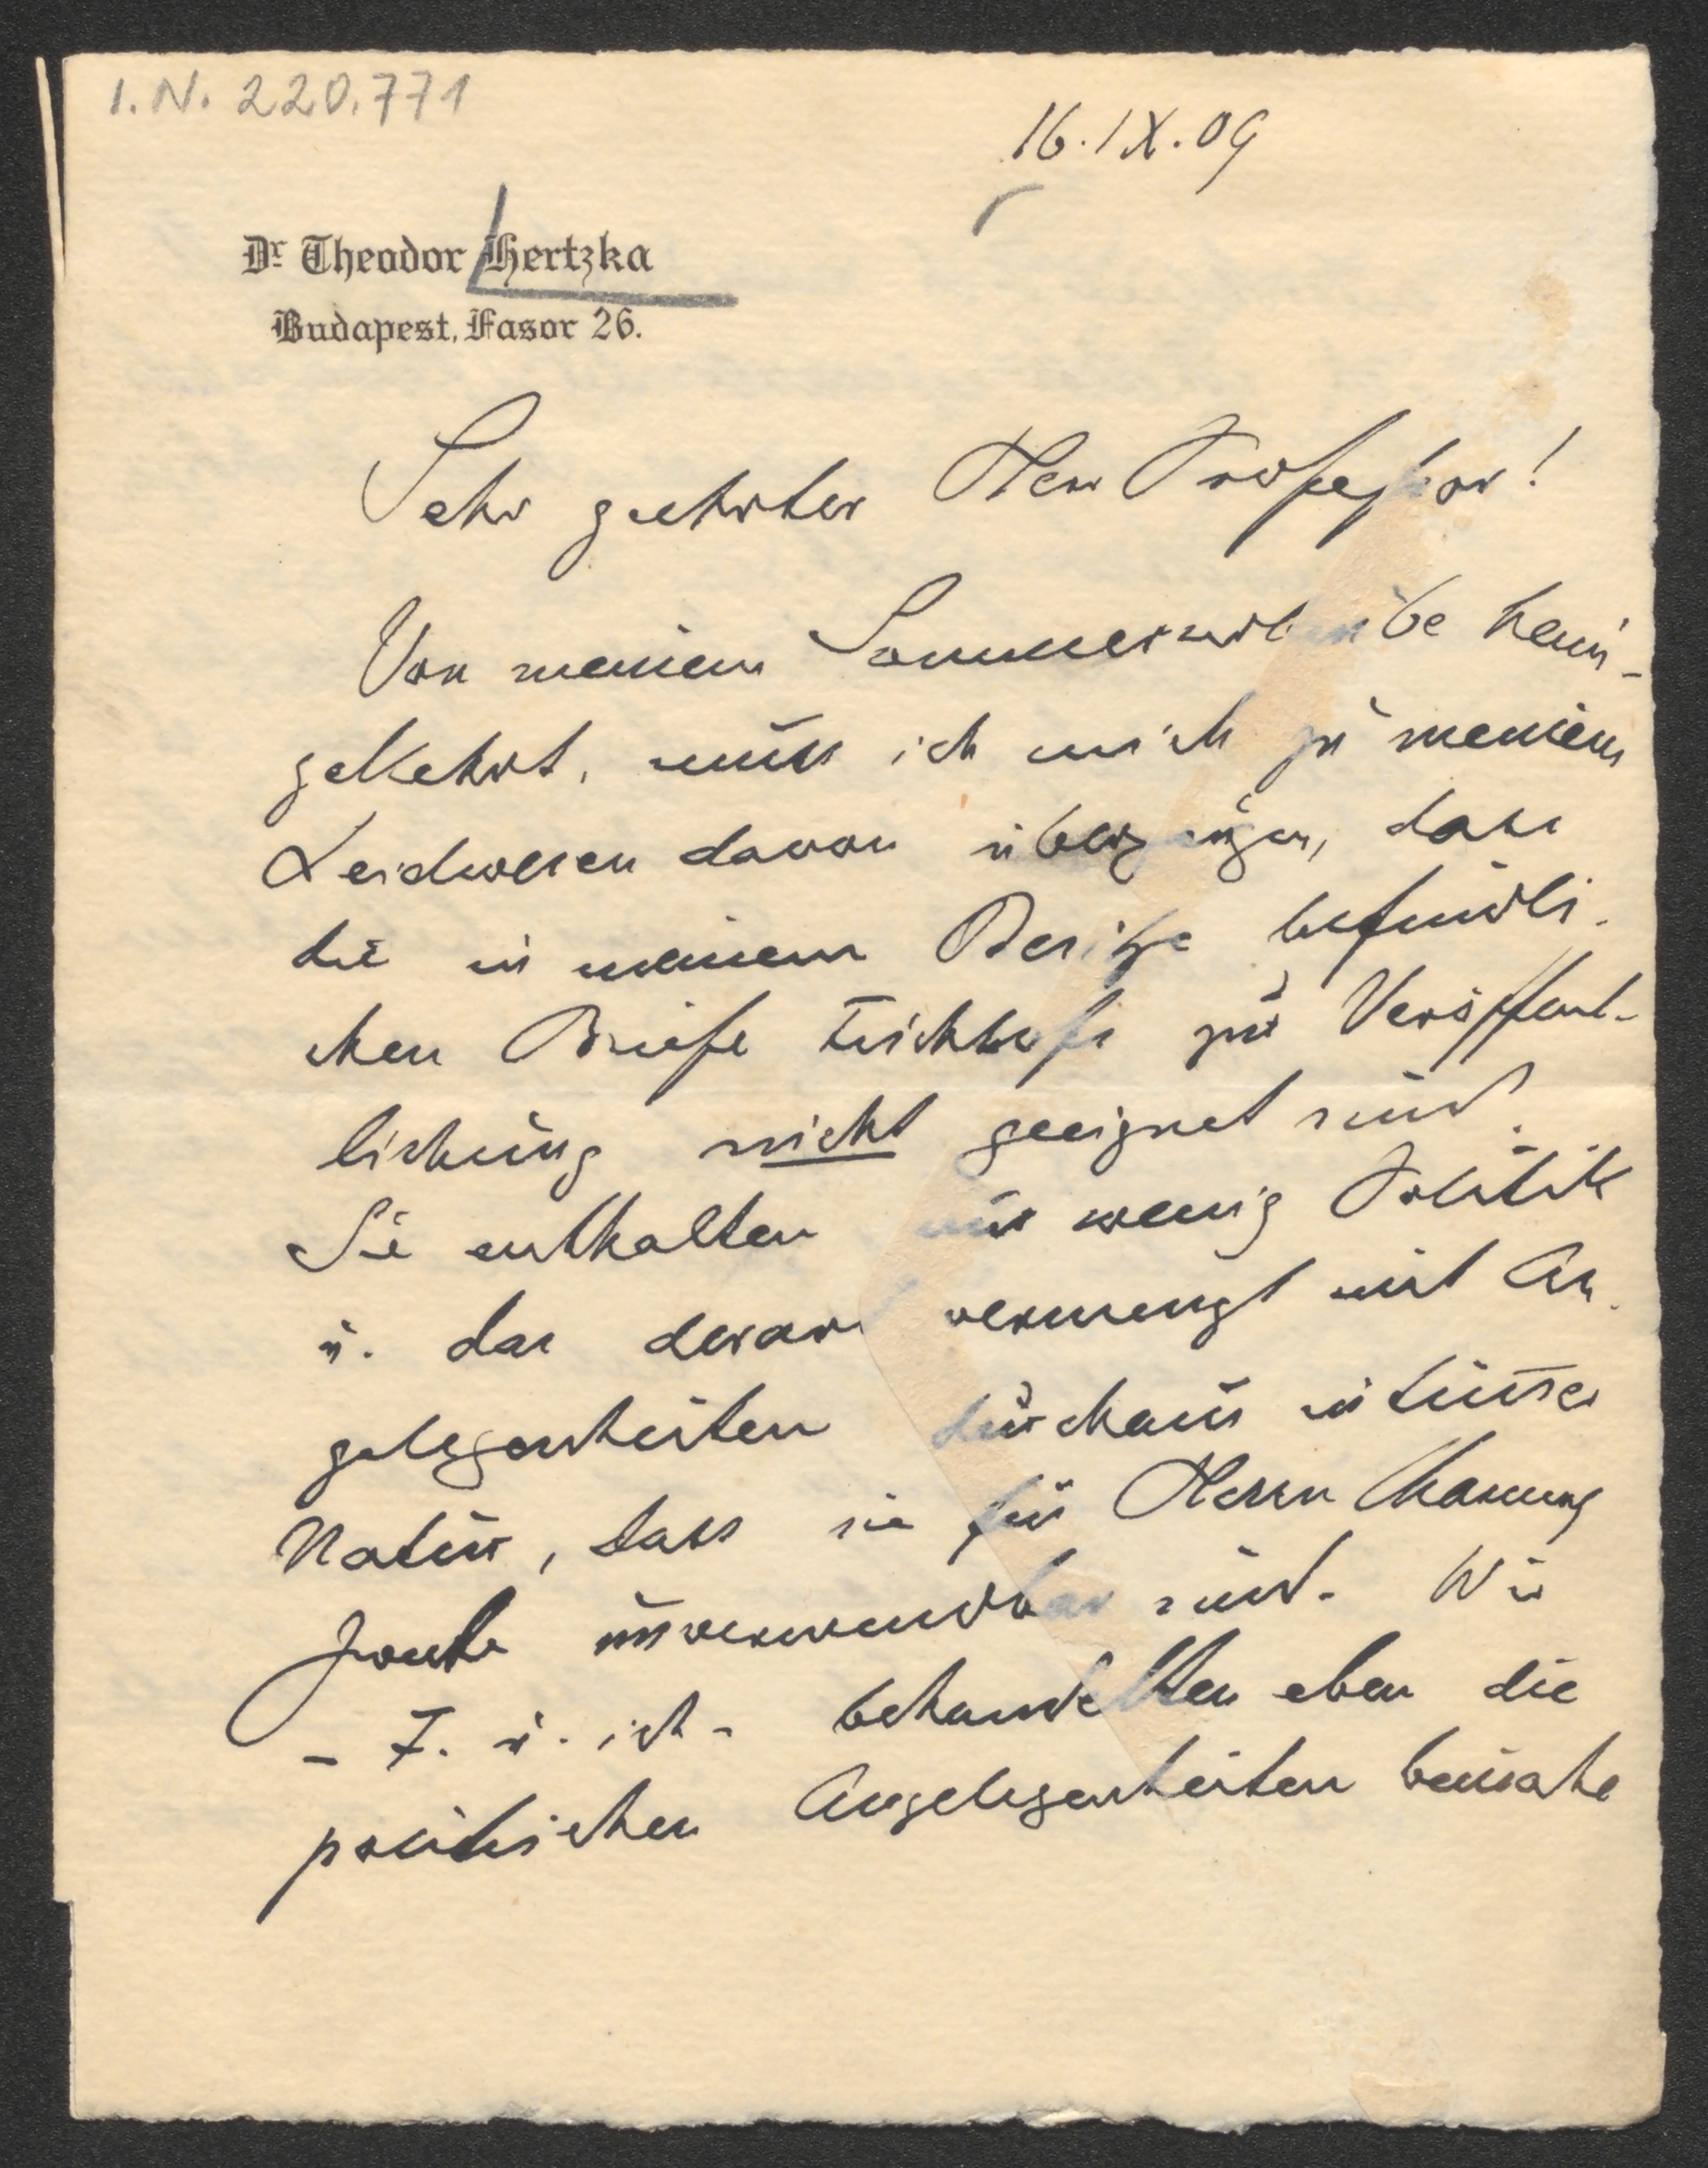 I.N. 220.771
16.IX.09
Dr Theodor Hertzka
Budapest, Fasor 26.
Sehr geehrter Herr Professor!
Von meinem Sommerurlaube heim-
gekehrt, muss ich mich zu meinem
Leidwesen davon überzeugen, dass
die in meinem Besitze befindli-
chen Briefe Fischhofs zur Veröffent-
lichung nicht geeignet sind.
Sie enthalten nur wenig Politik
u. das derart vermengt mit An-
gelegenheiten durchaus intimer
Natur, dass sie für Herrn
Zwecke unverwendbar sind. Wir
- F. u. ich - behandelten eben die
politischen Angelegenheiten beinahe